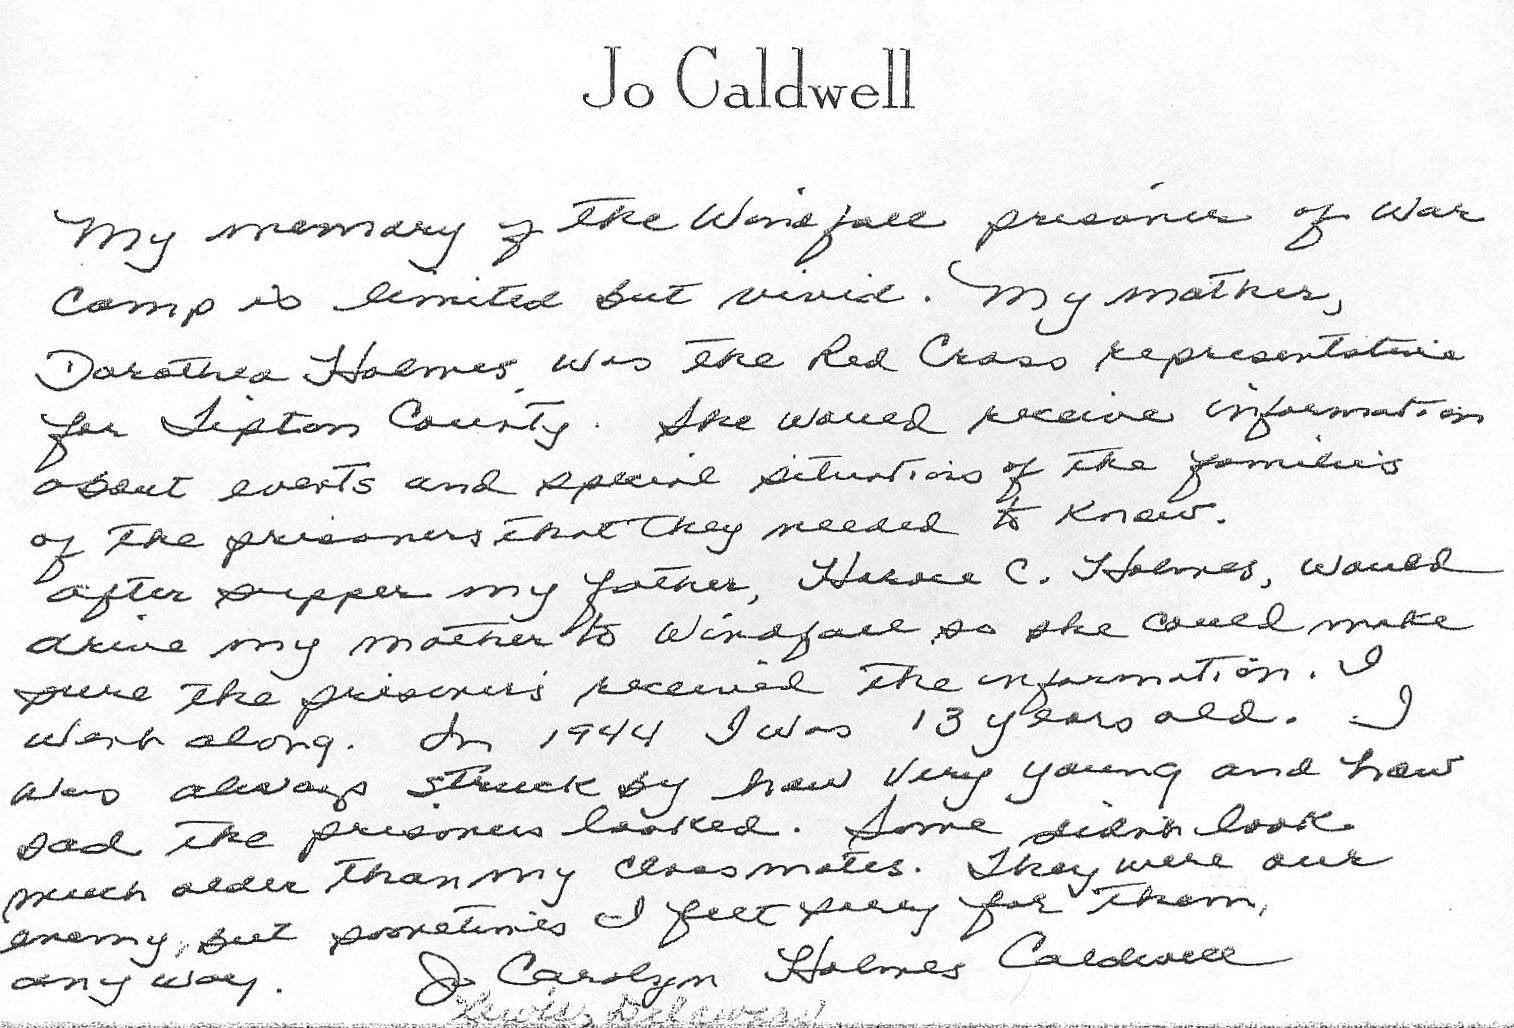 Jo Caldwell
My memory of the Windfall prisoner of War
Camp is limited but vivid. My mother,
Dorothea Holmes, was the Red Cross representative
for Tipton County. She would receive information
about events and special situations of the families
of the prisoners that they needed to know.
After supper my father, Horace C. Holmes, would
drive my mother to Windfall so she could make
sure the prisoners received the information. I
went along. In 1944 I was 13 years old. I
was always struck by how very young and how
sad the prisoners looked. Some didn't look
much older than my classmates. They were our
enemy, but sometimes I felt sorry for them,
any way. Jo Carolyn Holmes Caldwell
Lewes, Delaware